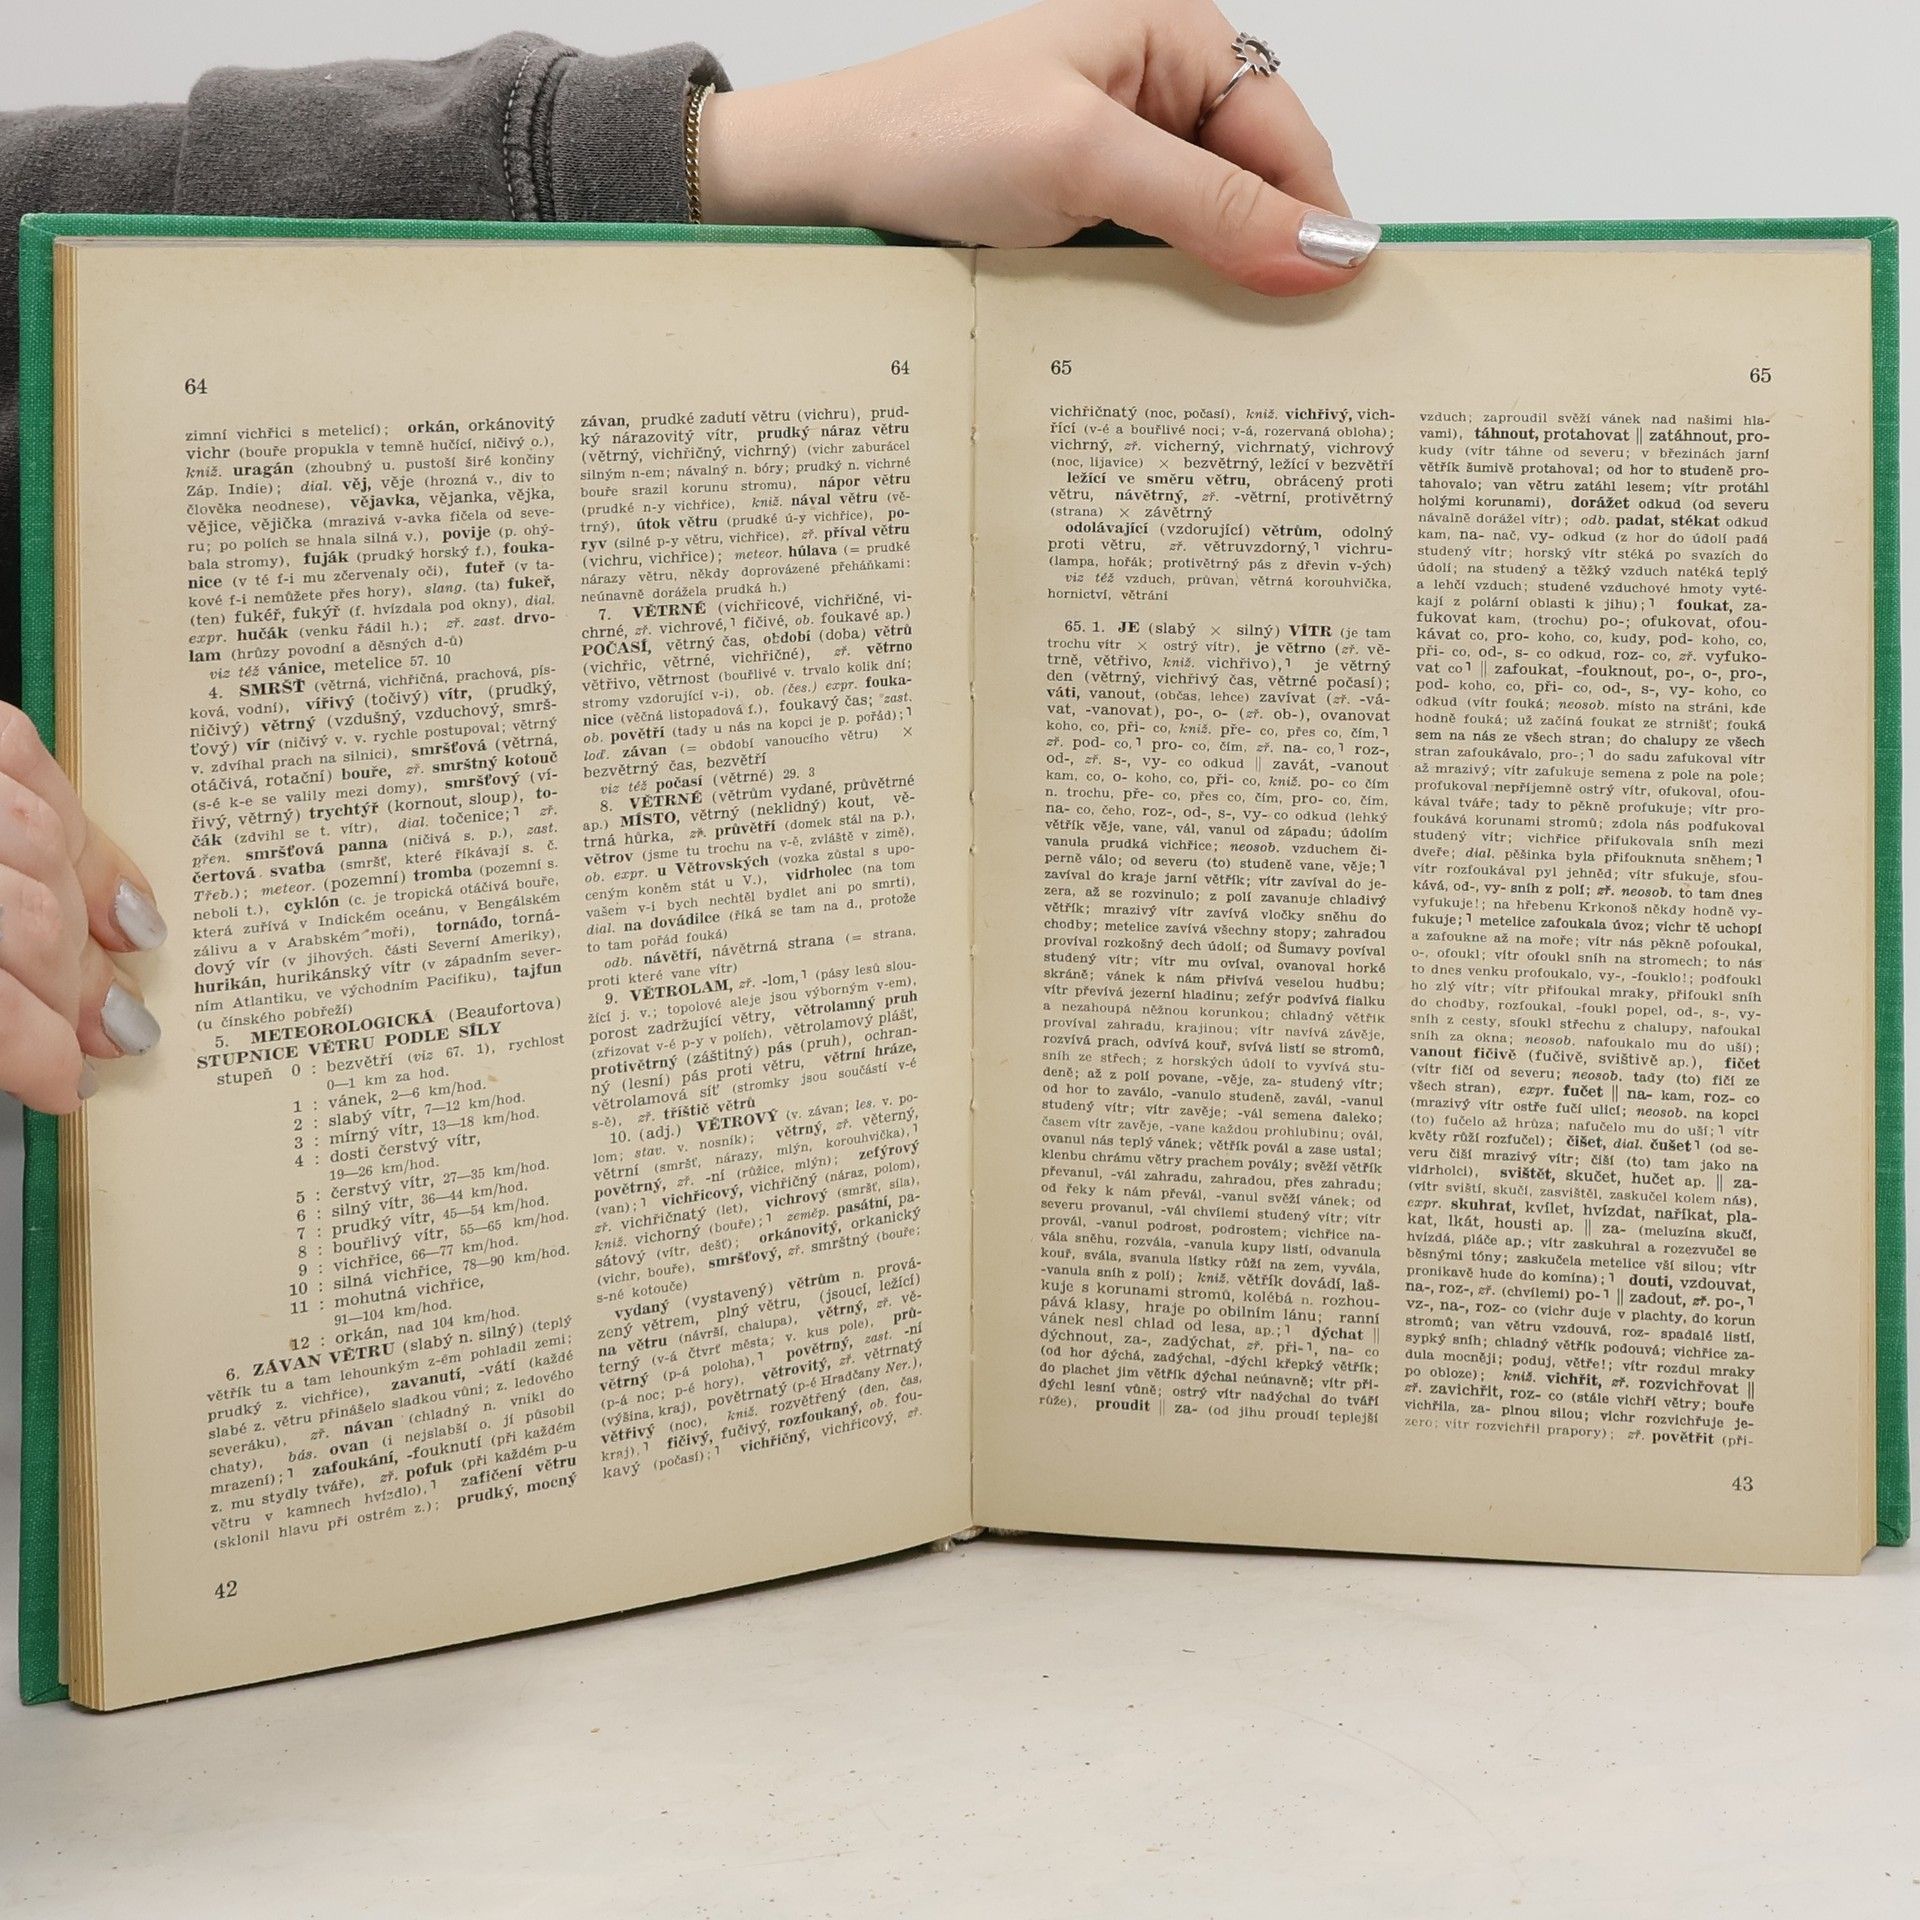 64
64
zimní vichřici s metelicí); orkán, orkánovitý
vichr (bouře propukla v temně hučící, ničivý o.),
kniž. uragán (zhoubný u. pustoší širé končiny
Záp. Indie); dial. věj, věje (hrozná v., div to
člověka neodnese), vějavka, vějanka, vějka,
vějice, vějička (mrazivá v-avka fičela od seve-
ru; po polích se hnala silná v.), povije (p. ohý-
bala stromy), fuják (prudký horský f.), fouka-
nice (v té f-i mu zčervenaly oči), futeř (v ta-
kové f-i nemůžete přes hory), slang. (ta) fukeř,
(ten) fukéř, fukýř (f. hvízdala pod okny), dial.
expr. hučák (venku řádil h.); zř. zast. drvo-
lam (hrůzy povodní a děsných d-ů)
viz též vánice, metelice 57. 10
4. SMRŠŤ (větrná, vichřičná, prachová, pís-
ková, vodní), vířivý (točivý) vítr, (prudký,
ničivý) větrný (vzdušný, vzduchový, smrš-
ťový) vír (ničivý v. v. rychle postupoval; větrný
v. zdvíhal prach na silnici), smršťová (větrná,
otáčivá, rotační) bouře, zř. smrštný kotouč
(s-é k-e se valily mezi domy), smršťový (ví-
řivý, větrný) trychtýř (kornout, sloup), to-
čák (zdvihl se t. vítr), dial. točenice;˥ zř.
přen. smršťová panna (ničivá s. p.), zast.
čertová svatba (smršť, které říkávají s. č.
Třeb.); meteor. (pozemní) tromba (pozemní s.
neboli t.), cyklón (c. je tropická otáčivá bouře,
která zuřívá v Indickém oceánu, v Bengálském
zálivu a v Arabském moři), tornádo, torná-
dový vír (v jihových. části Severní Ameriky),
hurikán, hurikánský vítr (v západním sever-
ním Atlantiku, ve východním Pacifiku), tajfun
(u čínského pobřeží)
5. METEOROLOGICKÁ (Beaufortova)
STUPNICE VĚTRU PODLE SÍLY
stupeň 0 : bezvětří (viz 67. 1), rychlost
0—1 km za hod.
1 : vánek, 2—6 km/hod.
2 : slabý vítr, 7—12 km/hod.
3 : mírný vítr, 13—18 km/hod.
4 : dosti čerstvý vítr,
19—26 km/hod.
5 : čerstvý vítr, 27—35 km/hod.
6 : silný vítr, 36—44 km/hod.
7 : prudký vítr, 45—54 km/hod.
8 : bouřlivý vítr, 55—65 km/hod.
9 : vichřice, 66—77 km/hod.
10 : silná vichřice, 78—90 km/hod.
11 : mohutná vichřice,
91—104 km/hod.
12 : orkán, nad 104 km/hod.
6. ZÁVAN VĚTRU (slabý n. silný) (teplý
větřík tu a tam lehounkým z-ém pohladil zemi;
prudký z. vichřice), zavanutí, -vátí (každé
slabé z. větru přinášelo sladkou vůni; z. ledového
severáku), zř. návan (chladný n. vnikl do
chaty), bás. ovan (i nejslabší o. jí působil
mrazení);˥ zafoukání, -fouknutí (při každém
z. mu stydly tváře), zř. pofuk (při každém p-u
větru v kamnech hvízdlo),˥ zafičení větru
(sklonil hlavu při ostrém z.); prudký, mocný
závan, prudké zadutí větru (vichru), prud-
ký nárazovitý vítr, prudký náraz větru
(větrný, vichřičný, vichrný) (vichr zaburácel
silným n-em; návalný n. bóry; prudký n. vichrné
bouře srazil korunu stromu), nápor větru
(prudké n-y vichřice), kniž. nával větru (vě-
trný), útok větru (prudké ú-y vichřice), po-
ryv (silné p-y větru, vichřice), zř. příval větru
(vichru, vichřice); meteor. húlava (= prudké
nárazy větru, někdy doprovázené přeháňkami:
neúnavně dorážela prudká h.)
7. VĚTRNÉ (vichřicové, vichřičné, vi-
chrné, zř. vichrové,˥ fičivé, ob. foukavé ap.)
POČASÍ, větrný čas, období (doba) větrů
(vichřic, větrné, vichřičné), zř. větrno
větřivo, větrnost (bouřlivé v. trvalo kolik dní;
stromy vzdorující v-i), ob. (čes.) expr. fouka-
nice (věčná listopadová f.), foukavý čas; zast.
ob. povětří (tady u nás na kopci je p. pořád);˥
loď. závan (= období vanoucího větru) ×
bezvětrný čas, bezvětří
viz též počasí (větrné) 29. 3
8. VĚTRNÉ (větrům vydané, průvětrné
ap.) MÍSTO, větrný (neklidný) kout, vě-
trná hůrka, zř. průvětří (domek stál na p.),
větrov (jsme tu trochu na v-ě, zvláště v zimě),
ob. expr. u Větrovských (vozka zůstal s upo-
ceným koněm stát u V.), vidrholec (na tom
vašem v-i bych nechtěl bydlet ani po smrti),
dial. na dovádilce (říká se tam na d., protože
to tam pořád fouká)
odb. návětří, návětrná strana (= strana,
proti které vane vítr)
9. VĚTROLAM, zř. -lom,˥ (pásy lesů slou-
žící j. v.; topolové aleje jsou výborným v-em),
porost zadržující větry, větrolamný pruh
(zřizovat v-é p-y v polích), větrolamový plášť,
protivětrný (záštitný) pás (pruh), ochran-
ný (lesní) pás proti větru, větrní hráze,
větrolamová síť (stromky jsou součástí v-é
s-ě), zř. tříštič větrů
10. (adj.) VĚTROVÝ (v. závan; les. v. po-
lom; stav. v. nosník); větrný, zř. věterný,
větrní (smršť, nárazy, mlýn, korouhvička),˥
povětrný, zř. -ní (růžice, mlýn); zefýrový
(van);˥ vichřicový, vichřičný (náraz, polom),
zř. vichřičnatý (let), vichrový (smršť, síla),
kniž. vichorný (bouře);˥ zeměp. pasátní, pa-
sátový (vítr, dešť); orkánovitý, orkanický
(vichr, bouře), smršťový, zř. smrštný (bouře;
s-né kotouče)
vydaný (vystavený) větrům n. prová-
zený větrem, plný větru, (jsoucí, ležící)
na větru (návrší, chalupa), větrný, zř. vě-
terný (v-á čtvrť města; v. kus pole), prů-
větrný (p-á poloha),˥ povětrný, zast. -ní
(p-á noc; p-é hory), větrovitý, zř. větrnatý
(výšina, kraj), povětrnatý (p-é Hradčany Ner.),
větřivý (noc), kniž. rozvětřený (den, čas,
kraj),˥ fičivý, fučivý, rozfoukaný, ob. fou-
kavý (počasí);˥ vichřičný, vichřicový, zř.
42
65
65
vichřičnatý (noc, počasí), kniž. vichřivý, vich-
řící (v-é a bouřlivé noci; v-á, rozervaná obloha);
vichrný, zř. vicherný, vichrnatý, vichrový
(noc, lijavice) × bezvětrný, ležící v bezvětří
ležící ve směru větru, obrácený proti
větru, návětrný, zř. -větrní, protivětrný
(strana) × závětrný
odolávající (vzdorující) větrům, odolný
proti větru, zř. větruvzdorný,˥ vichru-
(lampa, hořák; protivětrný pás z dřevin v-ých)
viz též vzduch, průvan, větrná korouhvička,
hornictví, větrání
65. 1. JE (slabý × silný) VÍTR (je tam
trochu vítr × ostrý vítr), je větrno (zř. vě-
trně, větřivo, kniž. vichřivo),˥ je větrný
den (větrný, vichřivý čas, větrné počasí);
váti, vanout, (občas, lehce) zavívat (zř. -vá-
vat, -vanovat), po-, o- (zř. ob-), ovanovat
koho, co, při- co, kniž. pře- co, přes co, čím,˥
zř. pod- co,˥ pro- co, čím, zř. na- co,˥ roz-,
od-, zř. s-, vy- co odkud ‖ zavát, -vanout
kam, co, o- koho, co, při- co, kniž. po- co čím
n. trochu, pře- co, přes co, čím, pro- co, čím,
na- co, čeho, roz-, od-, s-, vy- co odkud (lehký
větřík věje, vane, vál, vanul od západu; údolím
vanula prudká vichřice; neosob. vzduchem či-
perně válo; od severu (to) studeně vane, věje;˥
zavíval do kraje jarní větřík; vítr zavíval do je-
zera, až se rozvinulo; z polí zavanuje chladivý
větřík; mrazivý vítr zavívá vločky sněhu do
chodby; metelice zavívá všechny stopy; zahradou
províval rozkošný dech údolí; od Šumavy povíval
studený vítr; vítr mu ovíval, ovanoval horké
skráně; vánek k nám přivívá veselou hudbu;
vítr převívá jezerní hladinu; zefýr podvívá fialku
a nezahoupá něžnou korunkou; chladný větřík
províval zahradu, krajinou; vítr navívá závěje,
rozvívá prach, odvívá kouř, svívá listí se stromů,
sníh ze střech; z horských údolí to vyvívá stu-
deně; až z polí povane, -věje, za- studený vítr;
od hor to zaválo, -vanulo studeně, zavál, -vanul
studený vítr; vítr zavěje; -vál semena daleko;
časem vítr zavěje, -vane každou prohlubinu; ovál,
ovanul nás teplý vánek; větřík povál a zase ustal;
klenbu chrámu větry prachem povály; svěží větřík
převanul, -vál zahradu, zahradou, přes zahradu;
od řeky k nám převál, -vanul svěží vánek; od
severu provanul, -vál chvílemi studený vítr; vítr
provál, -vanul podrost, podrostem; vichřice na-
vála sněhu, rozvála, -vanula kupy listí, odvanula
kouř, svála, svanula lístky růží na zem, vyvála,
-vanula sníh z polí); kniž. větřík dovádí, laš-
kuje s korunami stromů, kolébá n. rozhou-
pává klasy, hraje po obilním lánu; ranní
vánek nesl chlad od lesa, ap.;˥ dýchat ‖
dýchnout, za-, zadýchat, zř. při-,˥ na- co
(od hor dýchá, zadýchal, -dýchl křepký větřík;
do plachet jim větřík dýchal neúnavně; vítr při-
dýchl lesní vůně; ostrý vítr nadýchal do tváří
růže), proudit ‖ za- (od jihu proudí teplejší
vzduch; zaproudil svěží vánek nad našimi hla-
vami), táhnout, protahovat ‖ zatáhnout, pro-
kudy (vítr táhne od severu; v březinách jarní
větřík šumivě protahoval; od hor to studeně pro-
tahovalo; van větru zatáhl lesem; vítr protáhl
holými korunami), dorážet odkud (od severu
návalně dorážel vítr); odb. padat, stékat odkud
kam, na- nač, vy- odkud (z hor do údolí padá
studený vítr; horský vítr stéká po svazích do
údolí; na studený a těžký vzduch natéká teplý
a lehčí vzduch; studené vzduchové hmoty vyté-
kají z polární oblasti k jihu);˥ foukat, za-
fukovat kam, (trochu) po-; ofukovat, ofou-
kávat co, pro- koho, co, kudy, pod- koho, co,
při- co, od-, s- co odkud, roz- co, zř. vyfuko-
vat co˥ ‖ zafoukat, -fouknout, po-, o-, pro-,
pod- koho, co, při- co, od-, s-, vy- koho, co
odkud (vítr fouká; neosob. místo na stráni, kde
hodně fouká; už začíná foukat ze strnišť; fouká
sem na nás ze všech stran; do chalupy ze všech
stran zafoukávalo, pro-;˥ do sadu zafukoval vítr
až mrazivý; vítr zafukuje semena z pole na pole;
profukoval nepříjemně ostrý vítr, ofukoval, ofou-
kával tváře; tady to pěkně profukuje; vítr pro-
foukává korunami stromů; zdola nás podfukoval
studený vítr; vichřice přifukovala sníh mezi
dveře; dial. pěšinka byla přifouknuta sněhem;˥
vítr rozfoukával pyl jehněd; vítr sfukuje, sfou-
kává, od-, vy- sníh z polí; zř. neosob. to tam dnes
vyfukuje!; na hřebenu Krkonoš někdy hodně vy-
fukuje;˥ metelice zafoukala úvoz; vichr tě uchopí
a zafoukne až na moře; vítr nás pěkně pofoukal,
o-, ofoukl; vítr ofoukl sníh na stromech; to nás
to dnes venku profoukalo, vy-, -fouklo!; podfoukl
ho zlý vítr; vítr přifoukal mraky, přifoukl sníh
do chodby, rozfoukal, -foukl popel, od-, s-, vy-
sníh z cesty, sfoukl střechu z chalupy, nafoukal
sníh za okna; neosob. nafoukalo mu do uší);
vanout fičivě (fučivě, svištivě ap.), fičet
(vítr fičí od severu; neosob. tady (to) fičí ze
všech stran), expr. fučet ‖ na- kam, roz- co
(mrazivý vítr ostře fučí ulicí; neosob. na kopci
(to) fučelo až hrůza; nafučelo mu do uší;˥ vítr
květy růží rozfučel); čišet, dial. čušet˥ (od se-
veru čiší mrazivý vítr; čiší (to) tam jako na
vidrholci), svištět, skučet, hučet ap. ‖ za-
(vítr sviští, skučí, zasvištěl, zaskučel kolem nás),
expr. skuhrat, kvílet, hvízdat, naříkat, pla-
kat, lkát, housti ap. ‖ za- (meluzína skučí,
hvízdá, pláče ap.; vítr zaskuhral a rozezvučel se
běsnými tóny; zaskučela metelice vší silou; vítr
pronikavě hude do komína);˥ douti, vzdouvat,
na-, roz-, zř. (chvílemi) po-˥ ‖ zadout, zř. po-,˥
vz-, na-, roz- co (vichr duje v plachty, do korun
stromů; van větru vzdouvá, roz- spadalé listí,
sypký sníh; chladný větřík podouvá; vichřice za-
dula mocněji; poduj, větře!; vítr rozdul mraky
po obloze); kniž. vichřit, zř. rozvichřovat ‖
zř. zavichřit, roz- co (stále vichří větry; bouře
vichřila, za- plnou silou; vichr rozvichřuje je-
zero; vítr rozvichřil prapory); zř. povětřit (při-
43